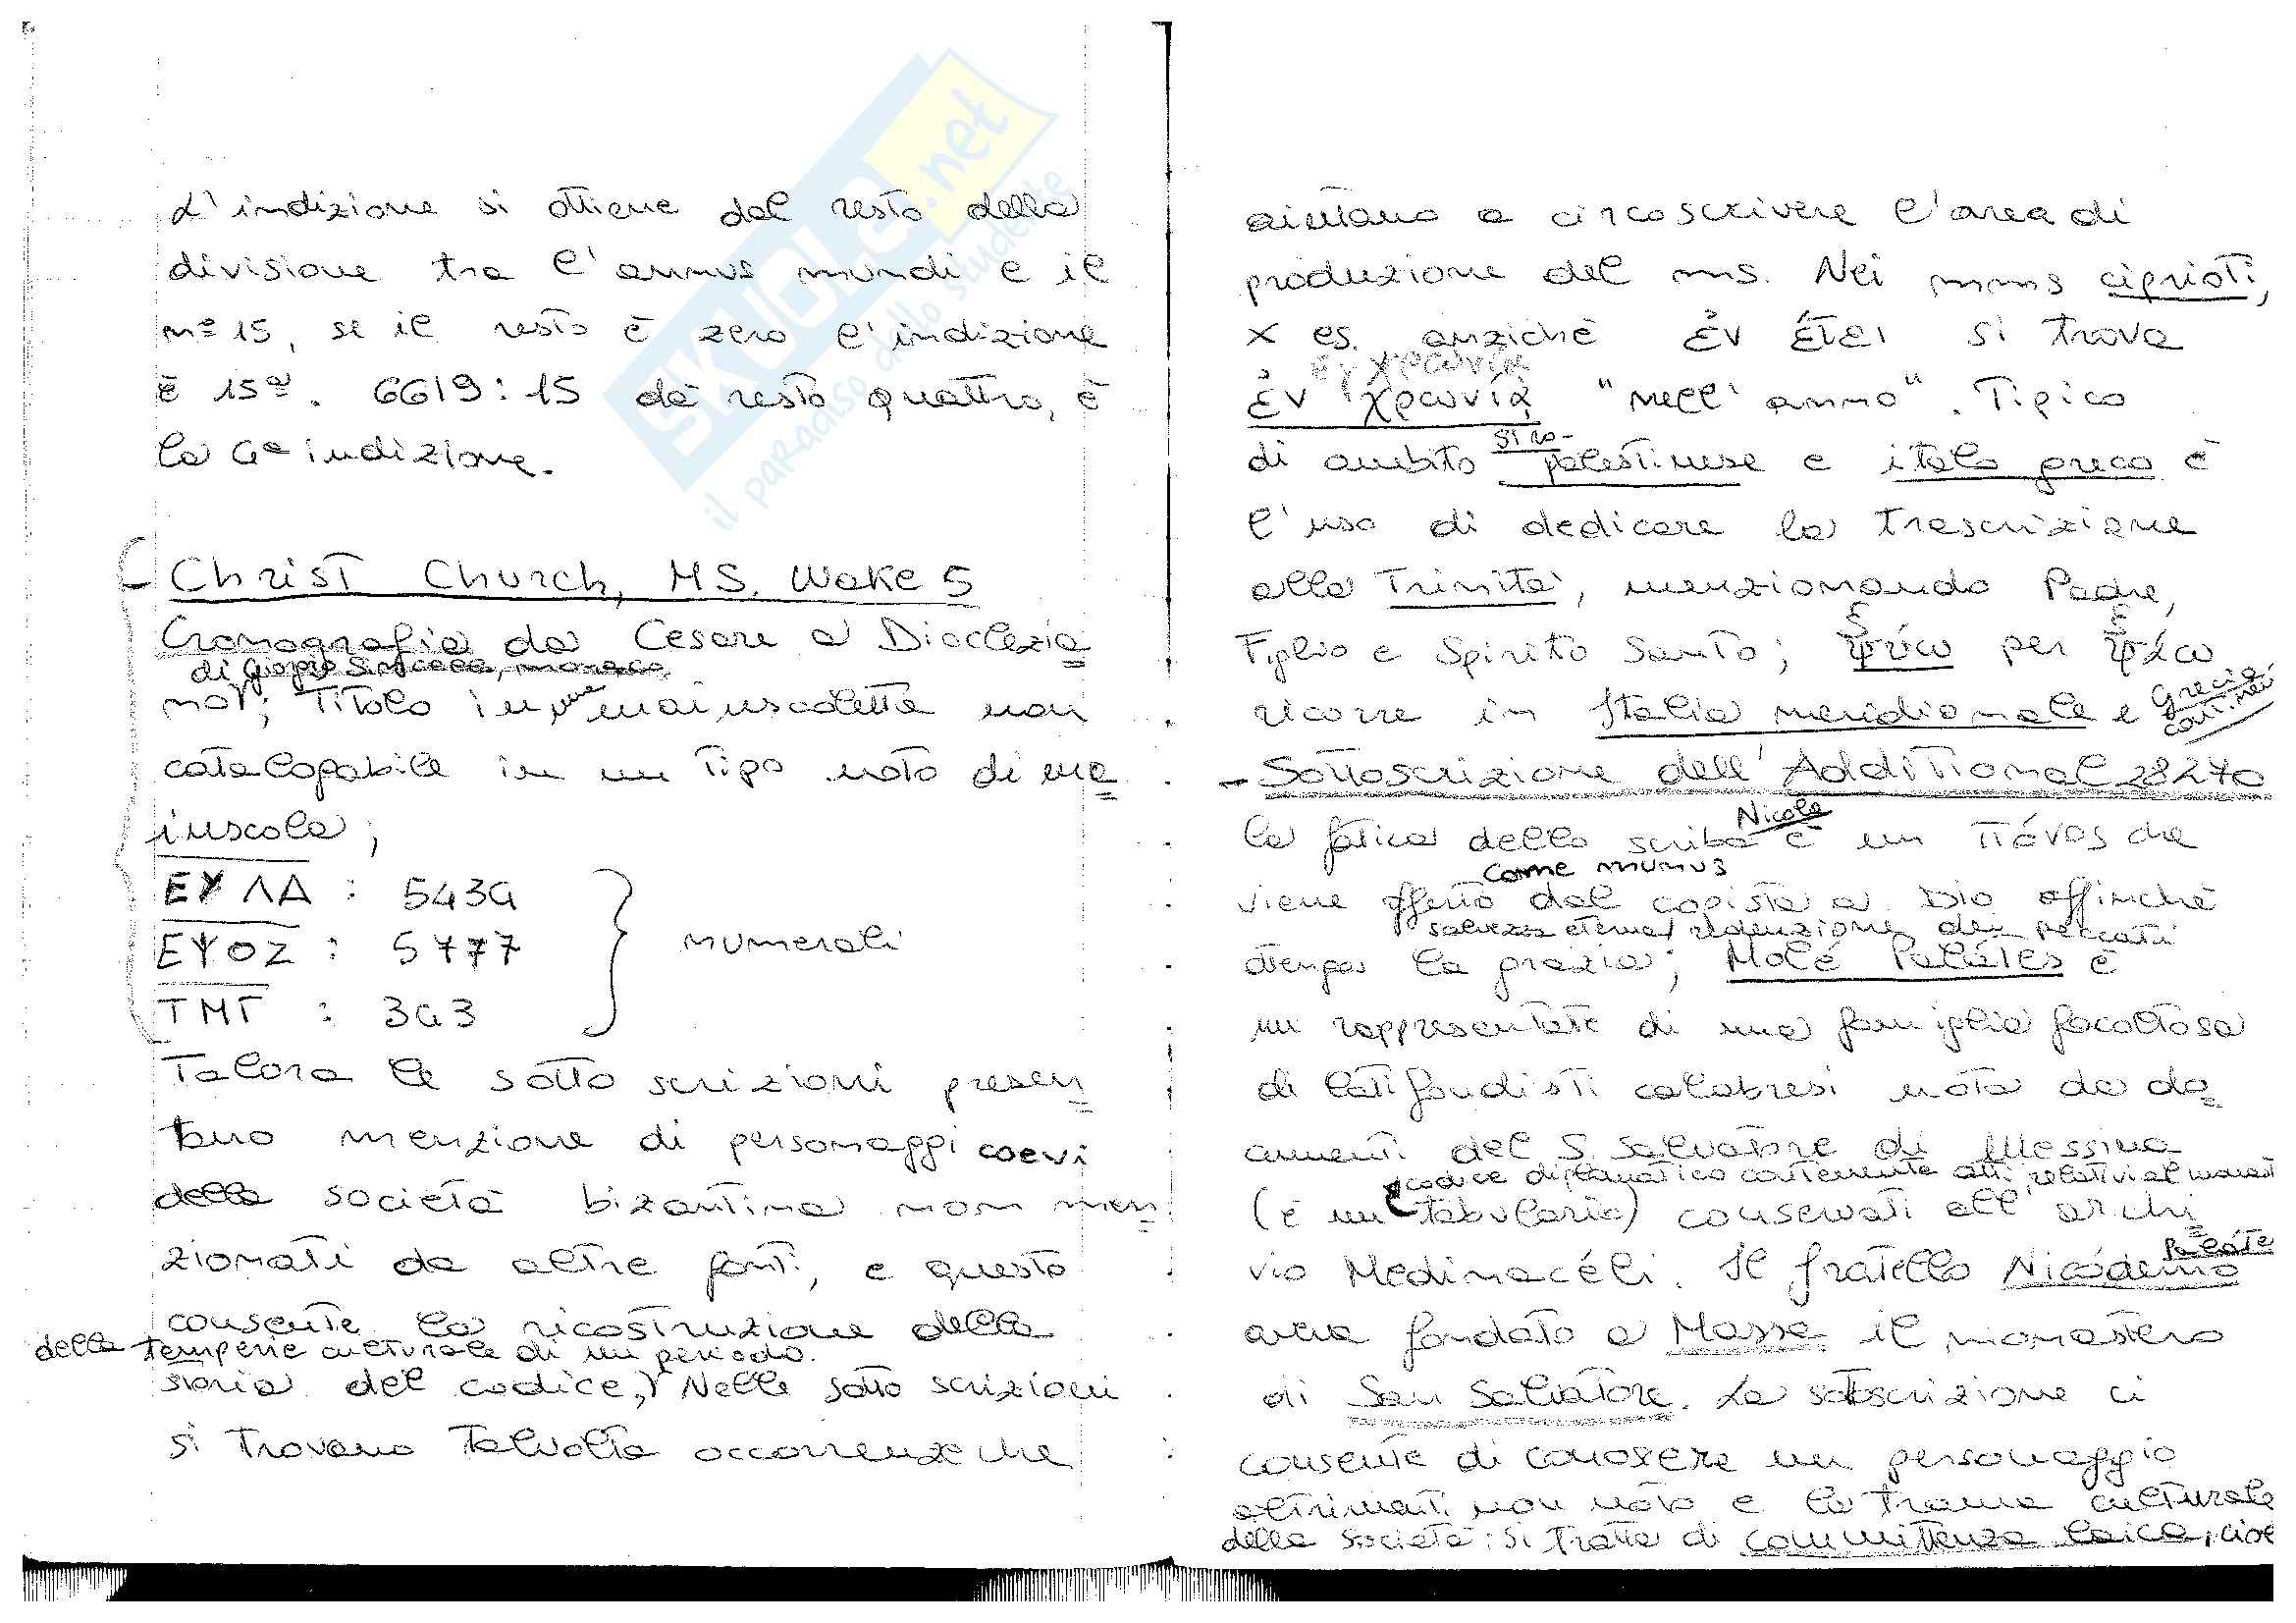 L'indizione si ottiene dal resto della
divisione tra l'annus mundi e il
n° 15, se il resto è zero l'indizione
è 15ª. 6619:15 dà resto quattro, è
la 4ª indizione.
- Christ Church, MS. Wake 5
Cronografia da Cesare a Dioclezia=
di Giorgio Sincello, monaco
no; Titolo in una maiuscoletta non
catalogabile in un tipo noto di ma=
iuscola;
ΕΥΛΔ : 5434
ΕΨΟΖ : 5777
ΤΜΓ : 343
numerali
Talora le sottoscrizioni presen=
tano menzione di personaggi coevi
della società bizantina non men=
zionati da altre fonti, e questo
consente la ricostruzione della
della temperie culturale di un periodo.
storia del codice, Nelle sottoscrizioni
si trovano talvolta occorrenze che
aiutano a circoscrivere l'area di
produzione del ms. Nei mms ciprioti,
x es. anziché ἐν ἔτει si trova
ἐν χρωνία "nell'anno". Tipico
siro-
di ambito palestinese e italo greco è
l'uso di dedicare la trascrizione
alla Trinità, menzionando Padre,
Figlio e Spirito Santo; per
ricorre in Italia meridionale e Grecia
- Sottoscrizione dell'Additional 28270
Nicola
la fatica dello scriba è un πόνος che
come munus
viene offerto dal copista a Dio affinché
salvezza eterna/redenzione dei peccati
ottenga la grazia; Molé Paléles è
un rappresentate di una famiglia facoltosa
di latifondisti calabresi nota da do=
cumenti del S. Salvatore di Messina
codice diplomatico contenente atti relativi al monast
(è un tabulario) conservati all'archi=
vio Medinacéli. Il fratello Nicodemo
aveva fondato a Massa il monastero
di San Salvatore. La sottoscrizione ci
consente di conoscere un personaggio
altrimenti non noto e la trama culturale
della società: si tratta di committenza laica, cioè
SKUOLA.net
il paradiso dello studente